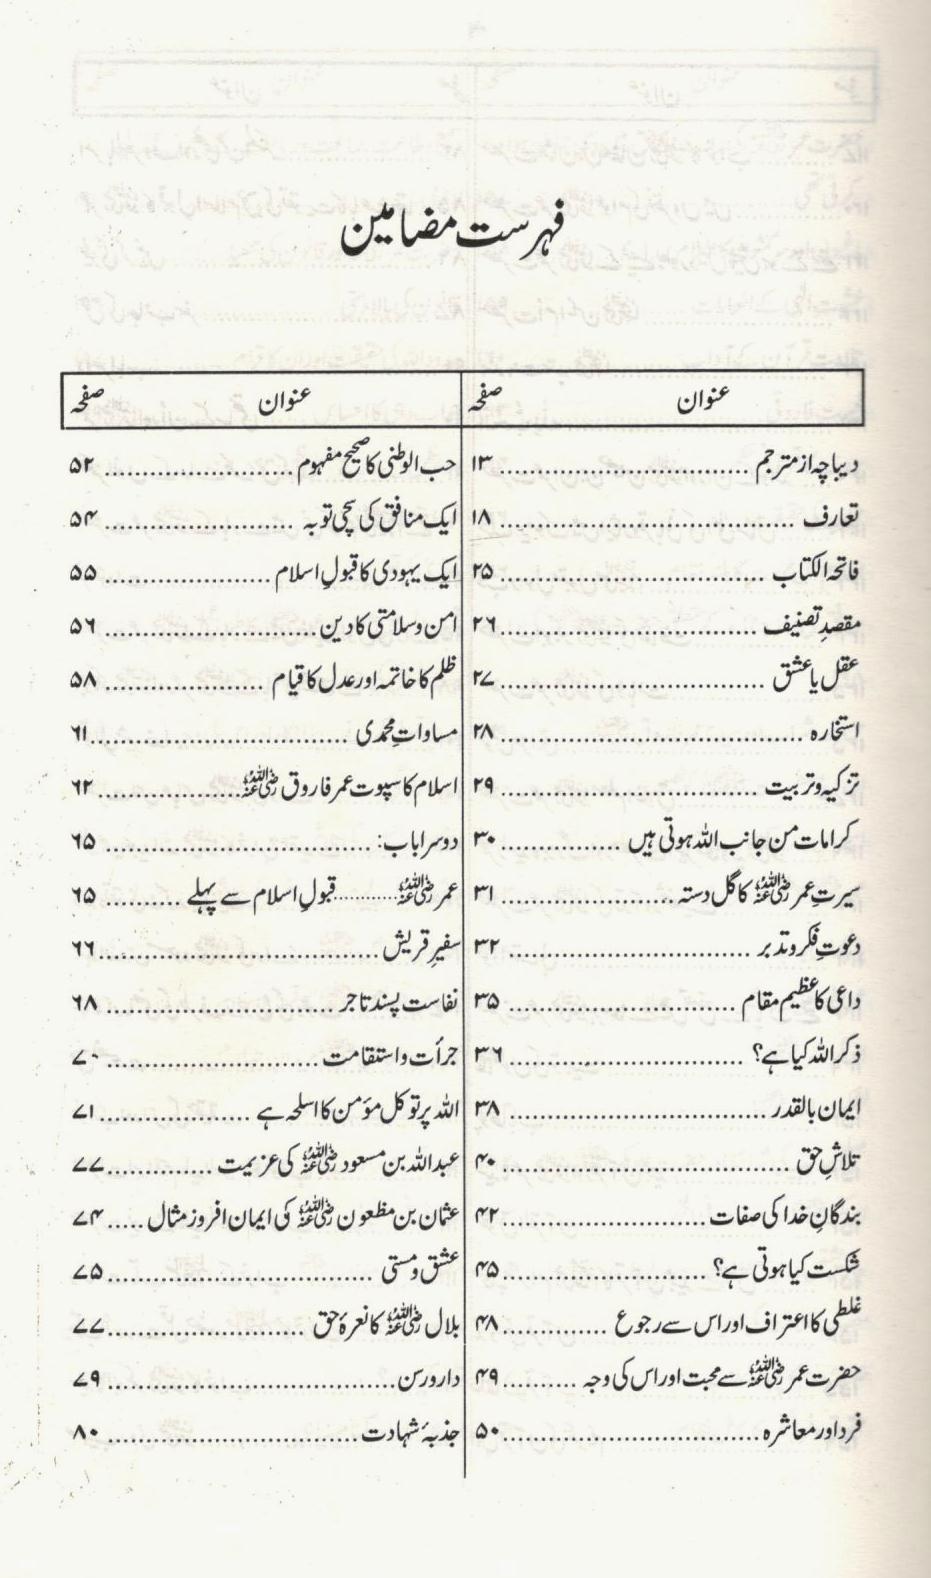 فہرست مضامین
عنوان صفحہ
دیباچہ از مترجم ................................ ۱۳
تعارف ................................ ۱۸
فاتحۃ الکتاب ................................ ۲۵
مقصدِ تصنیف ................................ ۲۶
عقل یا عشق ................................ ۲۷
استخارہ ................................ ۲۸
تزکیہ و تربیت ................................ ۲۹
کرامات من جانب اللہ ہوتی ہیں ................ ۳۰
سیرتِ عمر رضی اللہ عنہ کا گل دستہ ................ ۳۱
دعوتِ فکر و تدبر ................................ ۳۲
داعی کا عظیم مقام ................................ ۳۵
ذکر اللہ کیا ہے؟ ................................ ۳۶
ایمان بالقدر ................................ ۳۸
تلاشِ حق ................................ ۴۰
بندگانِ خدا کی صفات ................................ ۴۲
شکست کیا ہوتی ہے؟ ................................ ۴۵
غلطی کا اعتراف اور اس سے رجوع ................ ۴۸
حضرت عمر رضی اللہ عنہ سے محبت اور اس کی وجہ .......... ۴۹
فرد اور معاشرہ ................................ ۵۰
عنوان صفحہ
حب الوطنی کا صحیح مفہوم ................................ ۵۲
ایک منافق کی سچی توبہ ................................ ۵۴
ایک یہودی کا قبولِ اسلام ................................ ۵۵
امن و سلامتی کا دین ................................ ۵۶
ظلم کا خاتمہ اور عدل کا قیام ................ ۵۸
مساواتِ محمدی ................................ ۶۱
اسلام کا سپوت عمر فاروق رضی اللہ عنہ ................ ۶۲
دوسرا باب: ................................ ۶۵
عمر رضی اللہ عنہ ............ قبولِ اسلام سے پہلے .......... ۶۵
سفیرِ قریش ................................ ۶۶
نفاست پسند تاجر ................................ ۶۸
جرأت و استقامت ................................ ۷۰
اللہ پر توکل مؤمن کا اسلحہ ہے ................ ۷۱
عبداللہ بن مسعود رضی اللہ عنہ کی عزیمت .............. ۷۷
عثمان بن مظعون رضی اللہ عنہ کی ایمان افروز مثال ..... ۷۴
عشق و مستی ................................ ۷۵
بلال رضی اللہ عنہ کا نعرۂ حق ................ ۷۷
دار و رسن ................................ ۷۹
جذبۂ شہادت ................................ ۸۰